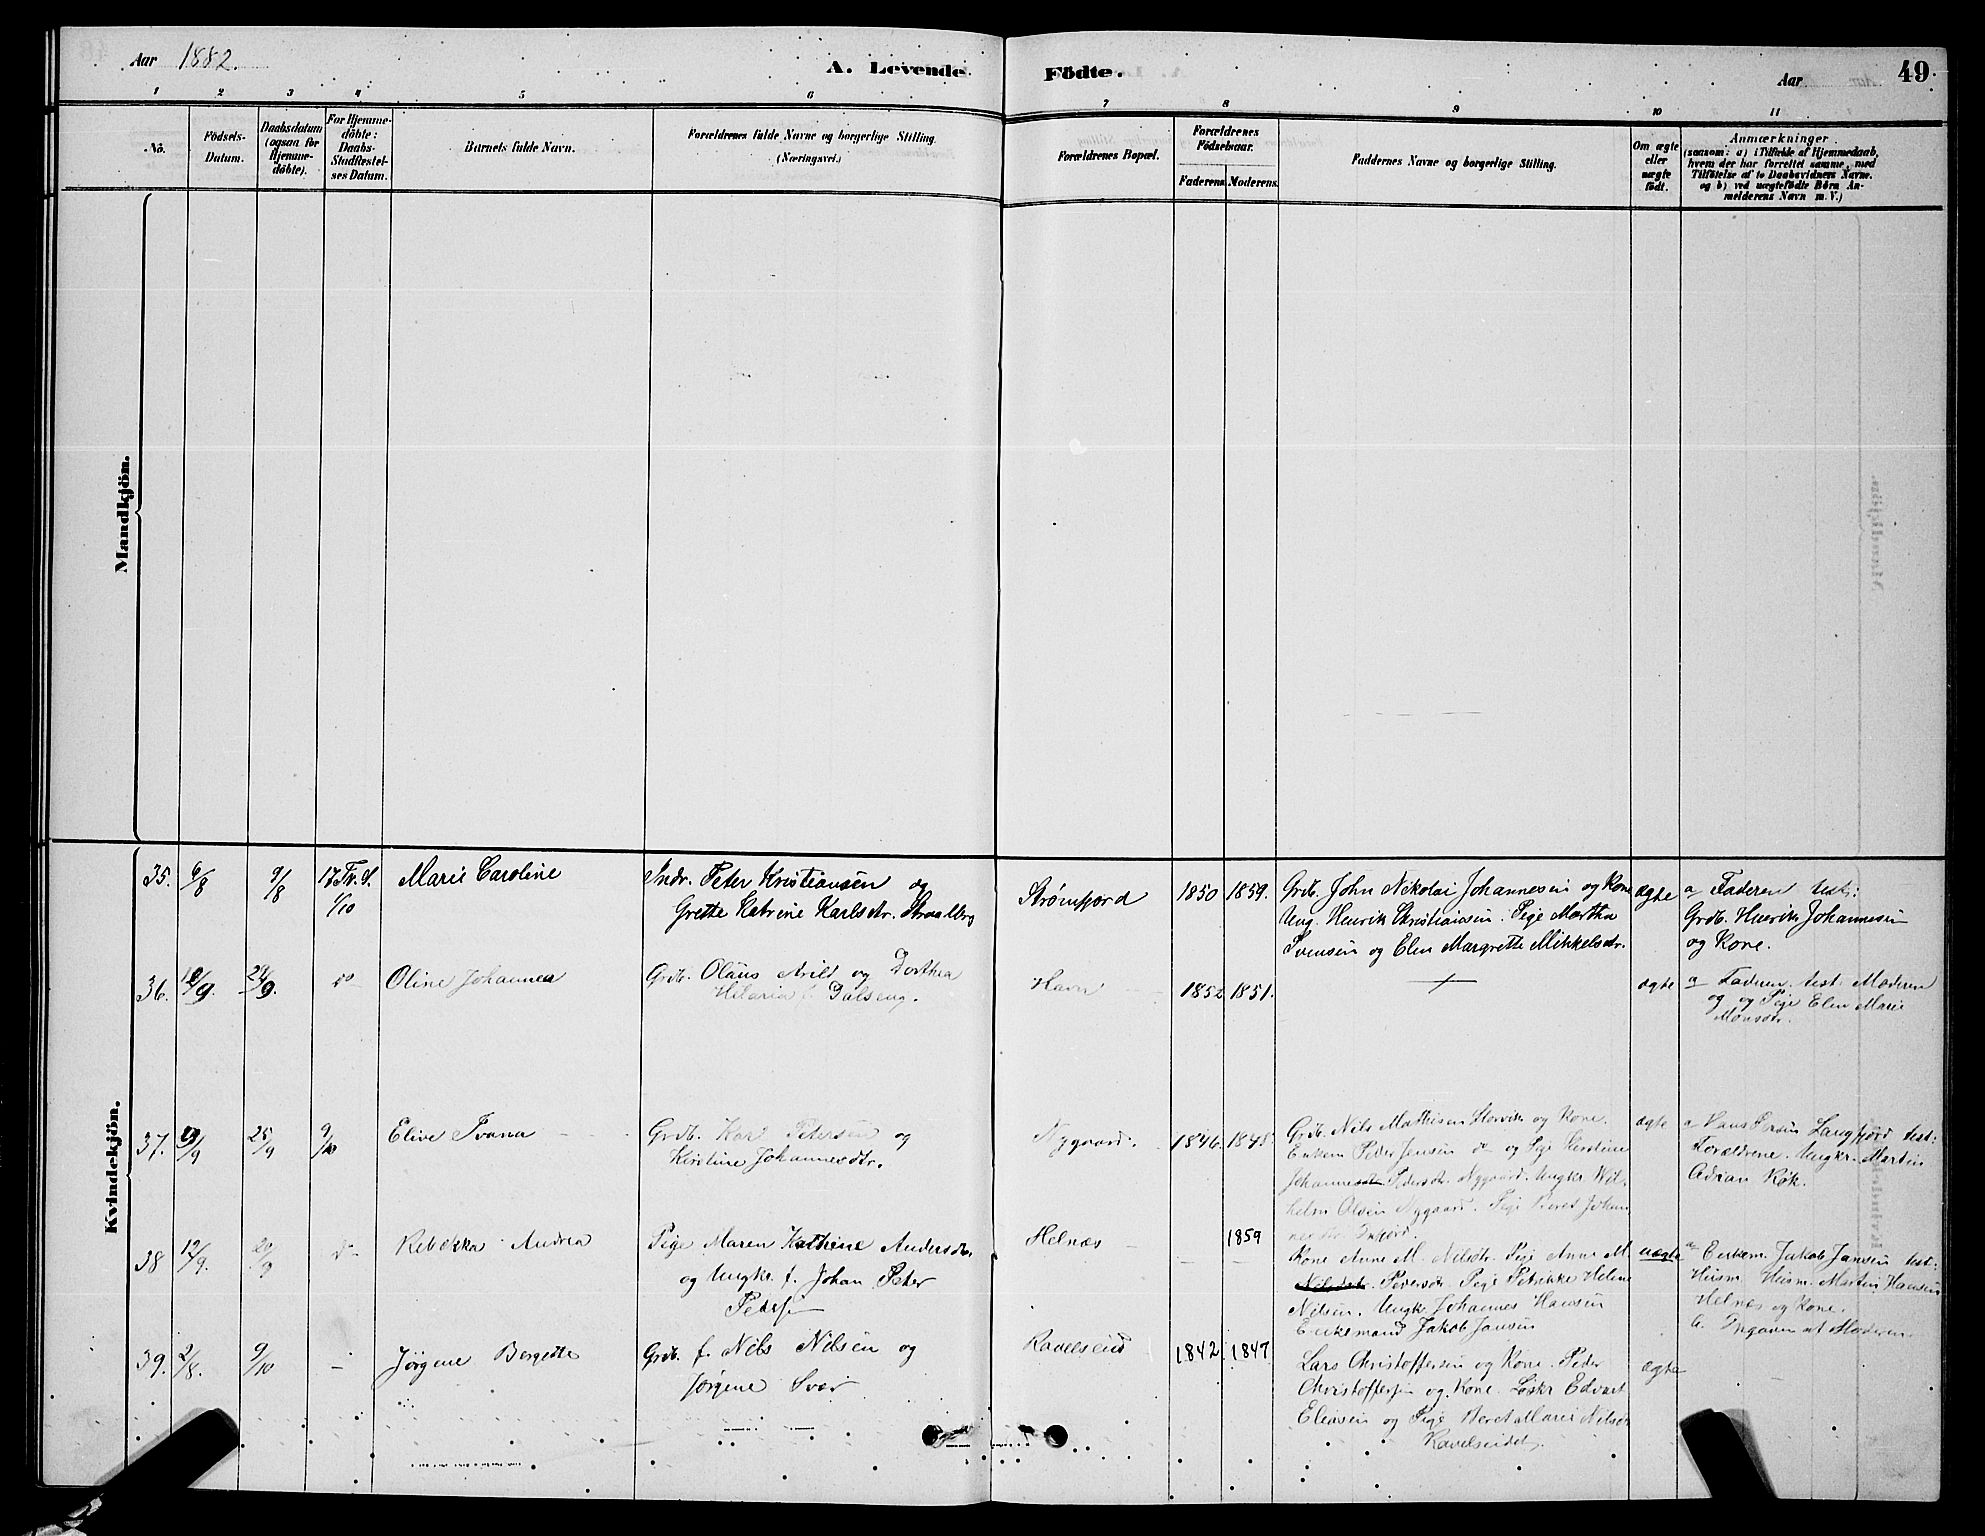 Aar 1882.
A. Levende Födte.
Aar
49
1 2 3 4 5 6 7 8 9 10 11
No.
Födsels-Datum.
Daabsdatum (ogsaa for Hjemme-döbte).
For Hjemme-döbte: Daabs-Stadfæstel-ses Datum.
Barnets fulde Navn.
Forældrenes fulde Navne og borgerlige Stilling. (Næringsvei.)
Forældrenes Bopæl.
Forældrenes Födselsaar.
Faderens. Moderens.
Faddernes Navne og borgerlige Stilling.
Om ægte eller uægte födt.
Anmærkninger
(saasom: a) i Tilfælde af Hjemmedaab, hvem der har forrettet samme, med Tilföielse af to Daabsvidners Navne. og b) ved uægtefödte Börn An-melderens Navn m. V.)
Mandkjön.
Kvindekjön.
35. 6/8 9/8 17 Tr. S. 1/10 Marie Caroline
Indr. Peter Kristiansen og
Grethe Katrine Karlsdtr. Straalberg
Strømfjord 1850 1859.
Grdb. John Nikolai Johannesen og Kone
Ung. Henrik Christiansen. Pige Martha
Svensen og Elen Margrethe Mikkelsdtr.
ægte
a Faderen test:
Grdb. Henrik Johannesen
og Kone.
36. 24/9. do Oline Johannea
Grdb. Olaus Arild og Dorthea
Hilaria f. Dalseng.
Havn 1852 1851.
ægte
a Faderen test: Moderen
og og Pige Elen Marie
Monsdtr.
37. 9/9 25/9 9/10 Elise Ivana
Grdb. Karl Petersen og
Kirstine Johannesdtr.
Nygaard. 1846. 1845.
Grdb. Nils Mathisen Storvik og Kone.
Enkem Peder Jensen do og Pige Kirstine
Johannesdtr Pedersdtr. Nygaard. Ungkr. Wil-
helm Olsen Nygaard. Pige Beret Johan
nesdtr.
ægte
a Hans Langfjord test:
Forældrene. Ungkr. Martin
Adrian Røk.
38 12/9. 20/9 do Rebekka Andrea
Pige Maren Kathrine Andersdtr.
og Ungkr. f. Johan Peter
Petersen
Helnæs 1859
Kone Anne M. Nilsdtr. Pige Anne M.
Nilsdtr. Pedersdtr Pige Petrikke Helene
Nilsen. Ungkr. Johannes Hansen
Enkemand Jakob Jansen
uægte
a Enkem. Jakob Jansen test:
Husm. Husm. Martin Hansen
Helnæs og Kone.
b. Opgaven af Moderen.
39. 2/8. 9/10 Jørgine Bergette
Grdb. f. Nils Nilsen og
Jørgine Svær
Ravelseid 1842 1847
Lars Christoffersen og Kone. Peder
Christoffersen og Kone. Løskr Edvart
Eliasen og Pige Beret Marie Nilsdtr
Ravelseidet.
ægte